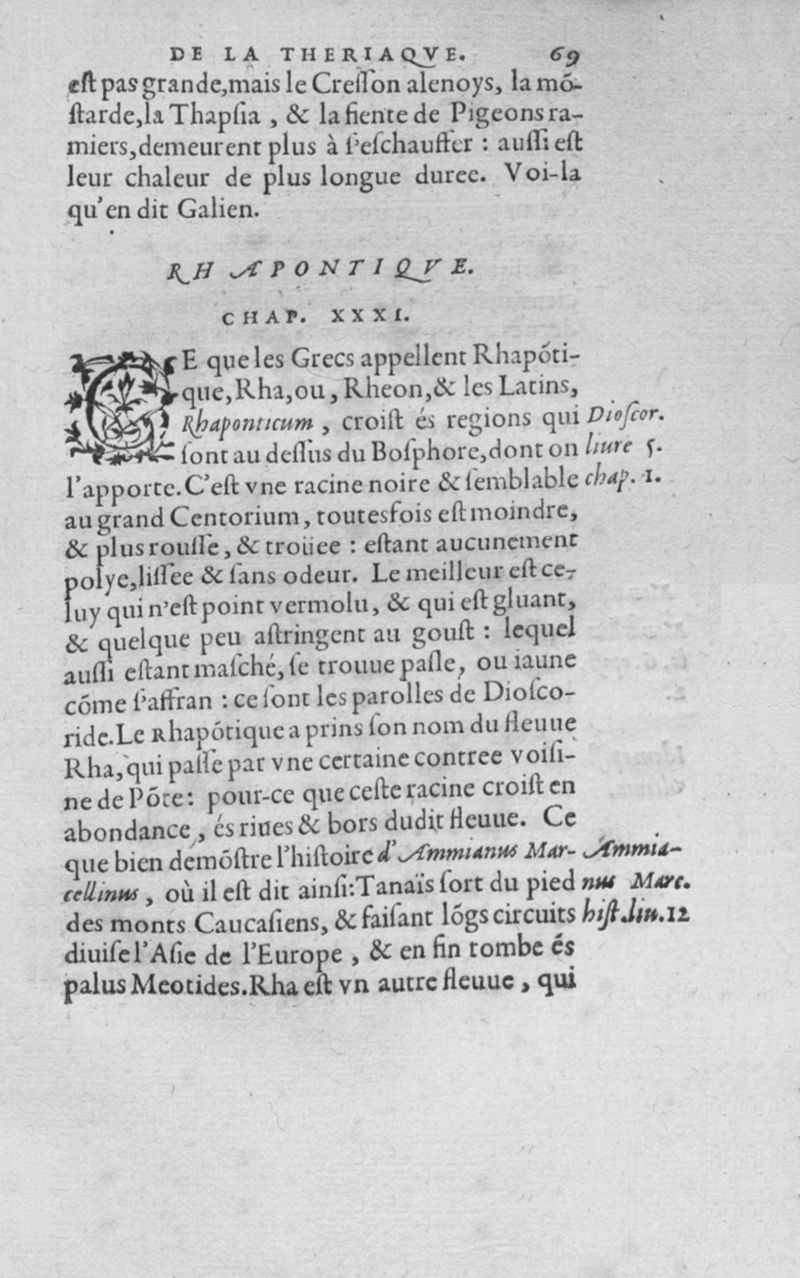 DE LA THERIAQVE. 69
eſt pas grande, mais le Creſſon alenoys, la mõ-
ſtarde, la Thapſia, & la fiente de Pigeons ra-
miers, demeurent plus à ſ'eſchauffer : auſſi eſt
leur chaleur de plus longue duree. Voi-la
qu'en dit Galien.
RHAPONTIQVE.
CHAP. XXXI.
CE que les Grecs appellent Rhapõti-
que, Rha, ou, Rheon, & les Latins,
Rhaponticum, croiſt és regions qui
ſont au deſſus du Boſphore, dont on
l'apporte. C'eſt vne racine noire & ſemblable
au grand Centorium, toutesfois eſt moindre,
& plus rouſſe, & troüee : eſtant aucunement
polye, liſſee & ſans odeur. Le meilleur eſt ce-
luy qui n'eſt point vermolu, & qui eſt gluant,
& quelque peu aſtringent au gouſt : lequel
auſſi eſtant maſché, ſe trouue paſle, ou iaune
cõme ſ'affran : ce ſont les parolles de Dioſco-
ride. Le Rhapõtique a prins ſon nom du fleuue
Rha, qui paſſe par vne certaine contree voiſi-
ne de Põte : pour-ce que ceſte racine croiſt en
abondance, és riues & bors dudit fleuue. Ce
que bien demõſtre l'hiſtoire d'Ammianus Mar-
cellinus, où il eſt dit ainſi : Tanaïs ſort du pied
des monts Caucaſiens, & faiſant lõgs circuits
diuiſe l'Aſie de l'Europe, & en fin tombe és
palus Meotides. Rha eſt vn autre fleuue, qui
Dioſcor.
liure 5.
chap. 1.
Ammia-
nus Marc.
hiſt. liu. 12